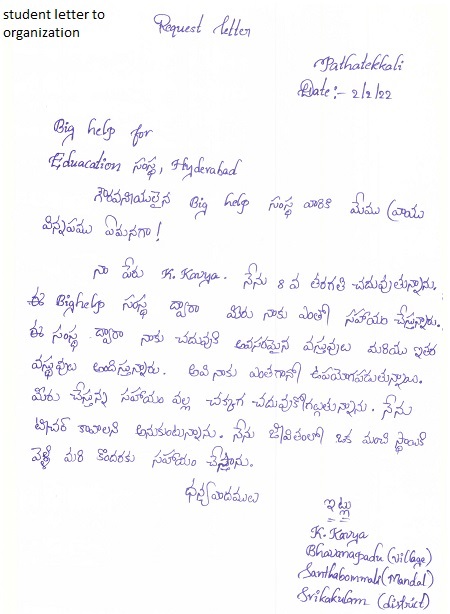 student letter to
organization
Request letter
Pathatekkali
Date:- 2/2/22
Big help for
Eduacation సంస్థ, Hyderabad
గౌరవనీయులైన Big help సంస్థ వారికి మేము వ్రాయు
విన్నపము ఏమనగా!
నా పేరు K. Kavya. నేను 8 వ తరగతి చదువుతున్నాను.
ఈ Bighelp సంస్థ ద్వారా మీరు నాకు ఎంతో సహాయం చేస్తున్నారు.
ఈ సంస్థ ద్వారా నాకు చదువుకి అవసరమైన వస్తువులు మరియు ఇతర
వస్తువులు అందిస్తున్నారు. అవి నాకు ఎంతగానో ఉపయోగపడుతున్నాయి.
మీరు చేస్తున్న సహాయం వల్ల చక్కగ చదువుకోగల్గుతున్నాను. నేను
టీచర్ కావాలని అనుకుంటున్నాను. నేను జీవితంలో ఒక మంచి స్థాయికి
వెళ్లి మరి కొందరకు సహాయం చేస్తాను.
ధన్యవాదములు
ఇట్లు
K. Kavya
Bhavanapadu (village)
Santhabommali (Mandal)
Srikakulam (district)